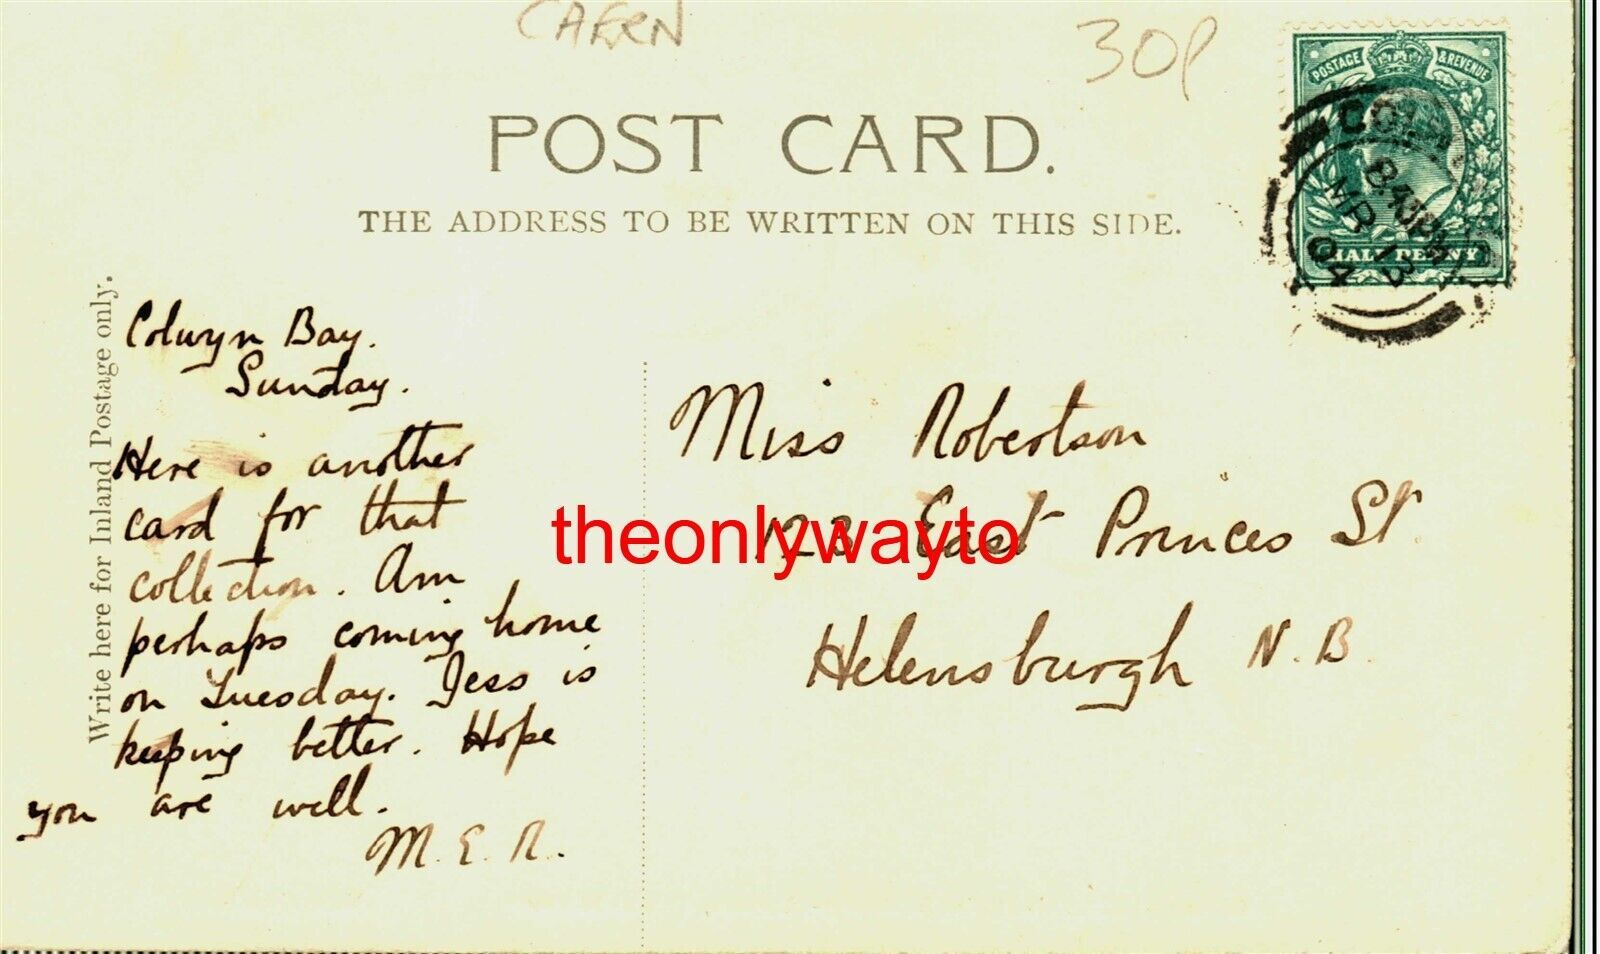 CAERN
30p
POSTAGE & REVENUE
HALF PENNY
8 40 PM
MR 13
04
POST CARD.
THE ADDRESS TO BE WRITTEN ON THIS SIDE.
Write here for Inland Postage only.
Colwyn Bay.
Sunday.
Here is another
card for that
collection. Am
perhaps coming home
on Tuesday. Jess is
keeping better. Hope
you are well.
M.E.R.
Miss Robertson
123 East Princes St.
Helensburgh N.B.
theonlywayto